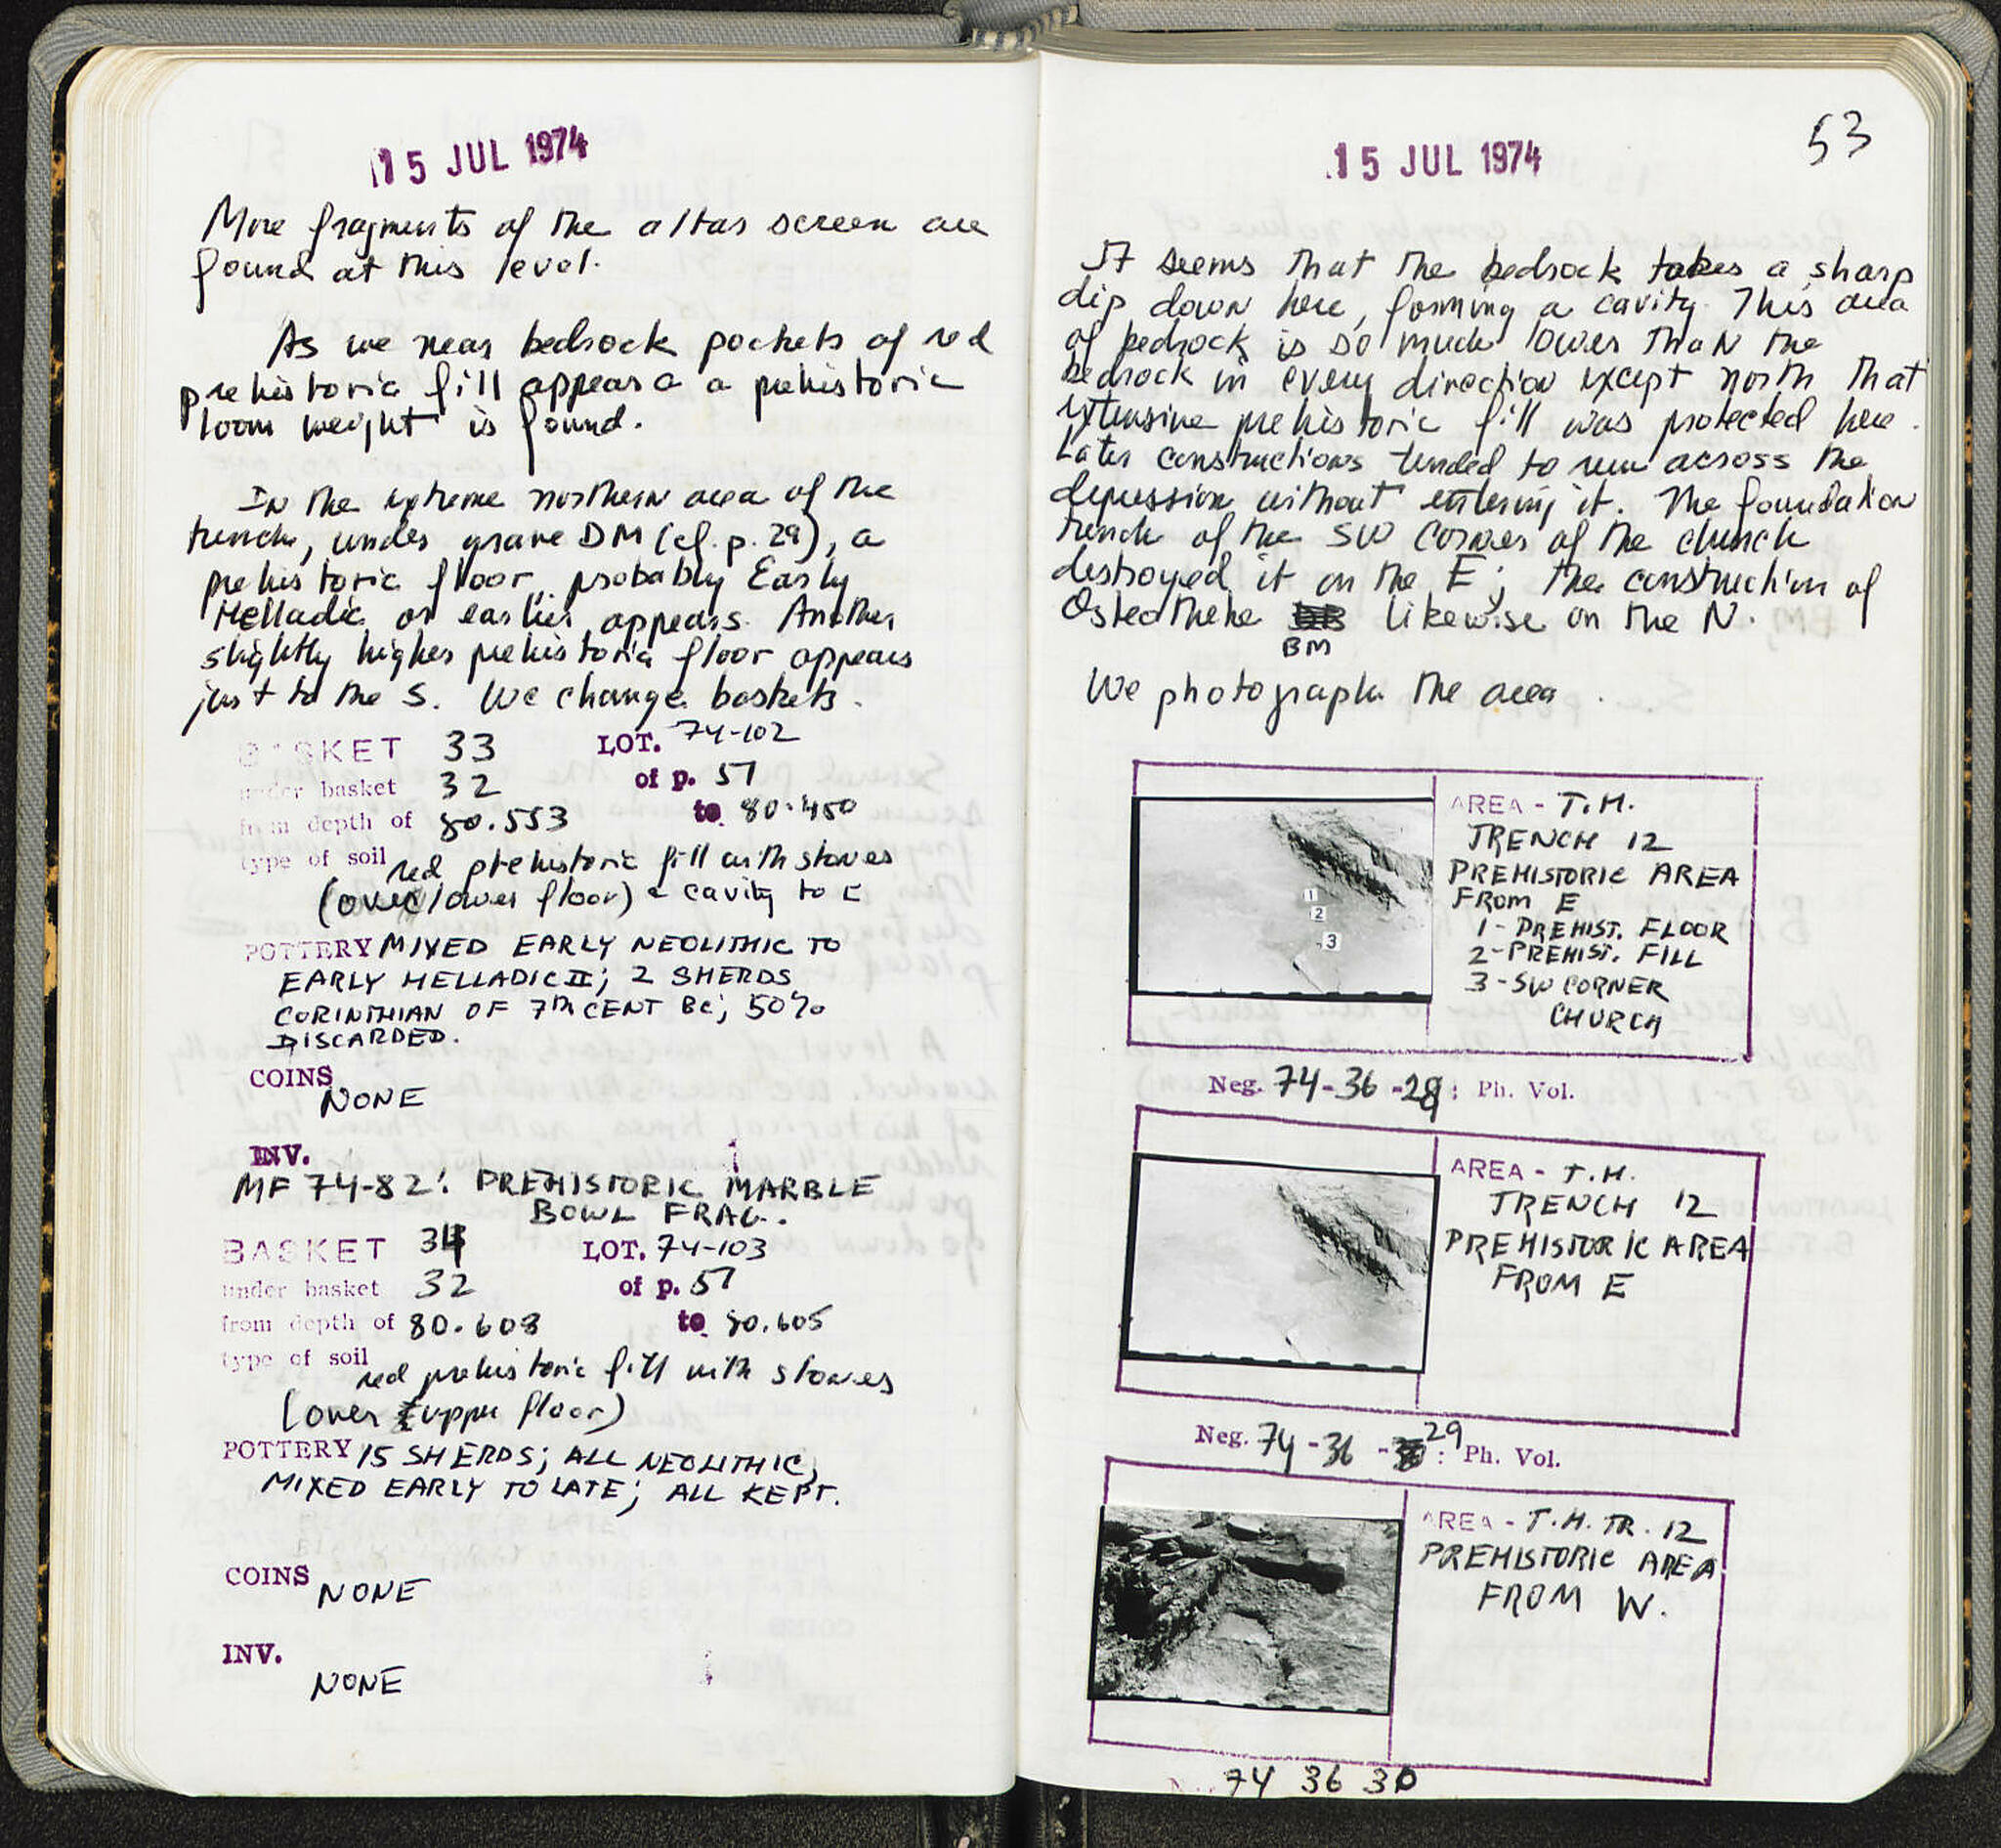 15 JUL 1974
More fragments of the altar screen are
found at this level.
As we near bedrock pockets of red
prehistoric fill appear a a prehistoric
loom weight is found.
In the extreme northern area of the
trench, under grave DM (cf. p. 29), a
prehistoric floor, probably Early
Helladic or earlier appears. Another
slightly higher prehistoric floor appears
just to the S. We change baskets.
BASKET 33 LOT. 74-102
under basket 32 of p. 51
from depth of 80.553 to 80.450
type of soil red prehistoric fill with stones
(over lower floor) & cavity to E
POTTERY MIXED EARLY NEOLITHIC TO
EARLY HELLADIC II; 2 SHERDS
CORINTHIAN OF 7TH CENT BC; 50%
DISCARDED.
COINS NONE
INV.
MF 74-82: PREHISTORIC MARBLE
BOWL FRAG.
BASKET 34 LOT. 74-103
under basket 32 of p. 51
from depth of 80.608 to 80.605
type of soil red prehistoric fill with stones
(over upper floor)
POTTERY 15 SHERDS; ALL NEOLITHIC,
MIXED EARLY TO LATE; ALL KEPT.
COINS NONE
INV.
NONE
53
15 JUL 1974
It seems that the bedrock takes a sharp
dip down here, forming a cavity. This area
of bedrock is so much lower than the
bedrock in every direction except north that
extensive prehistoric fill was protected here.
Later constructions tended to run across the
depression without entering it. The foundation
trench of the SW corner of the church
destroyed it on the E; the construction of
Osteotheke BM likewise on the N.
We photograph the area.
AREA - T.H.
TRENCH 12
PREHISTORIC AREA
FROM E
1 - PREHIST. FLOOR
2 - PREHIST. FILL
3 - SW CORNER
CHURCH
1
2
3
Neg. 74-36-28: Ph. Vol.
AREA - T.H.
TRENCH 12
PREHISTORIC AREA
FROM E
Neg. 74-36-29: Ph. Vol.
AREA - T.H. TR. 12
PREHISTORIC AREA
FROM W.
74 36 30